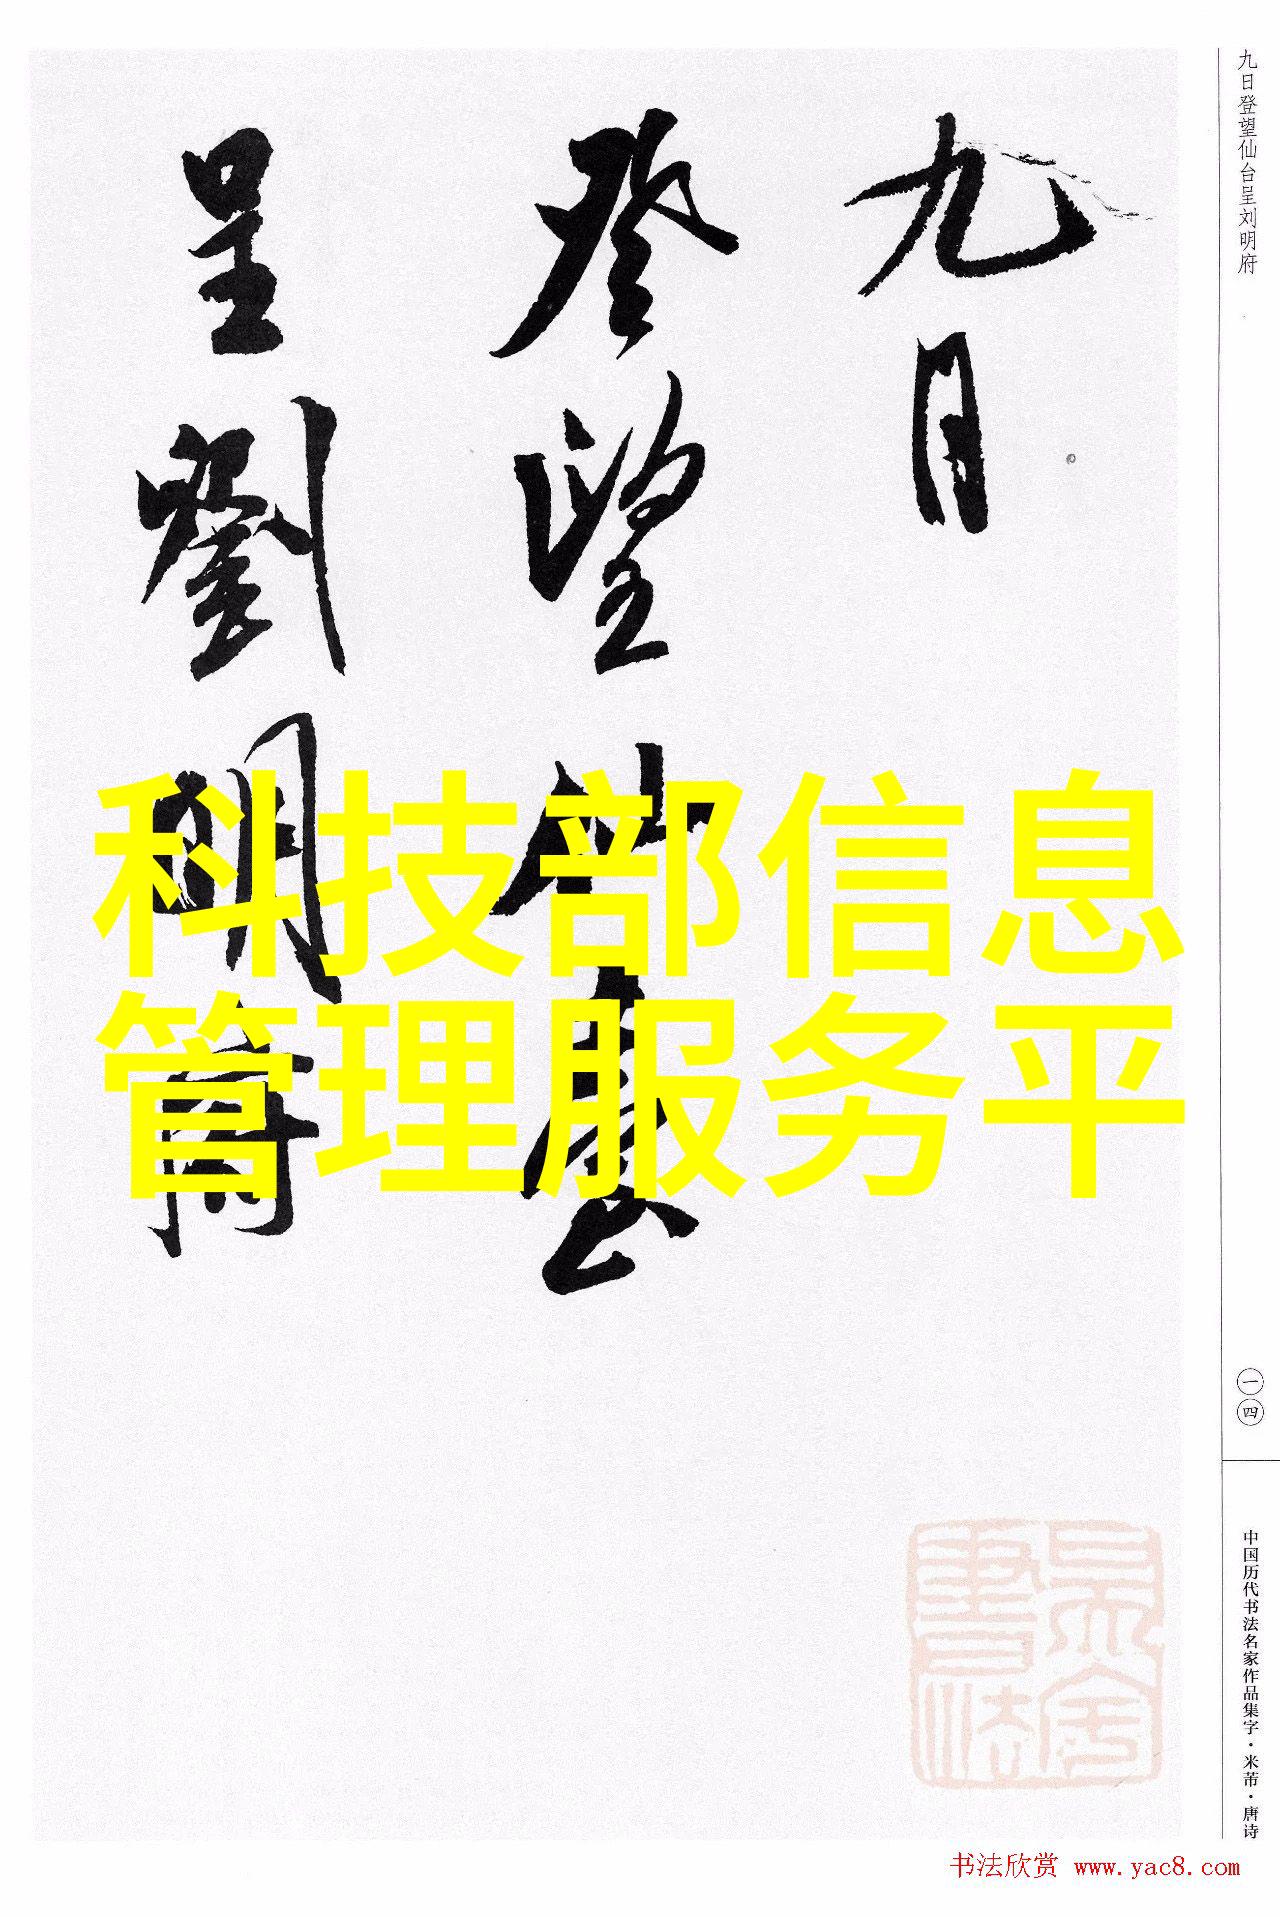 九日
登望仙臺
呈劉明府
科技部信息
管理服务平
九日登望仙台呈刘明府
一四
中国历代书法名家作品集字·米芾·唐诗
书法欣赏 www.yac8.com